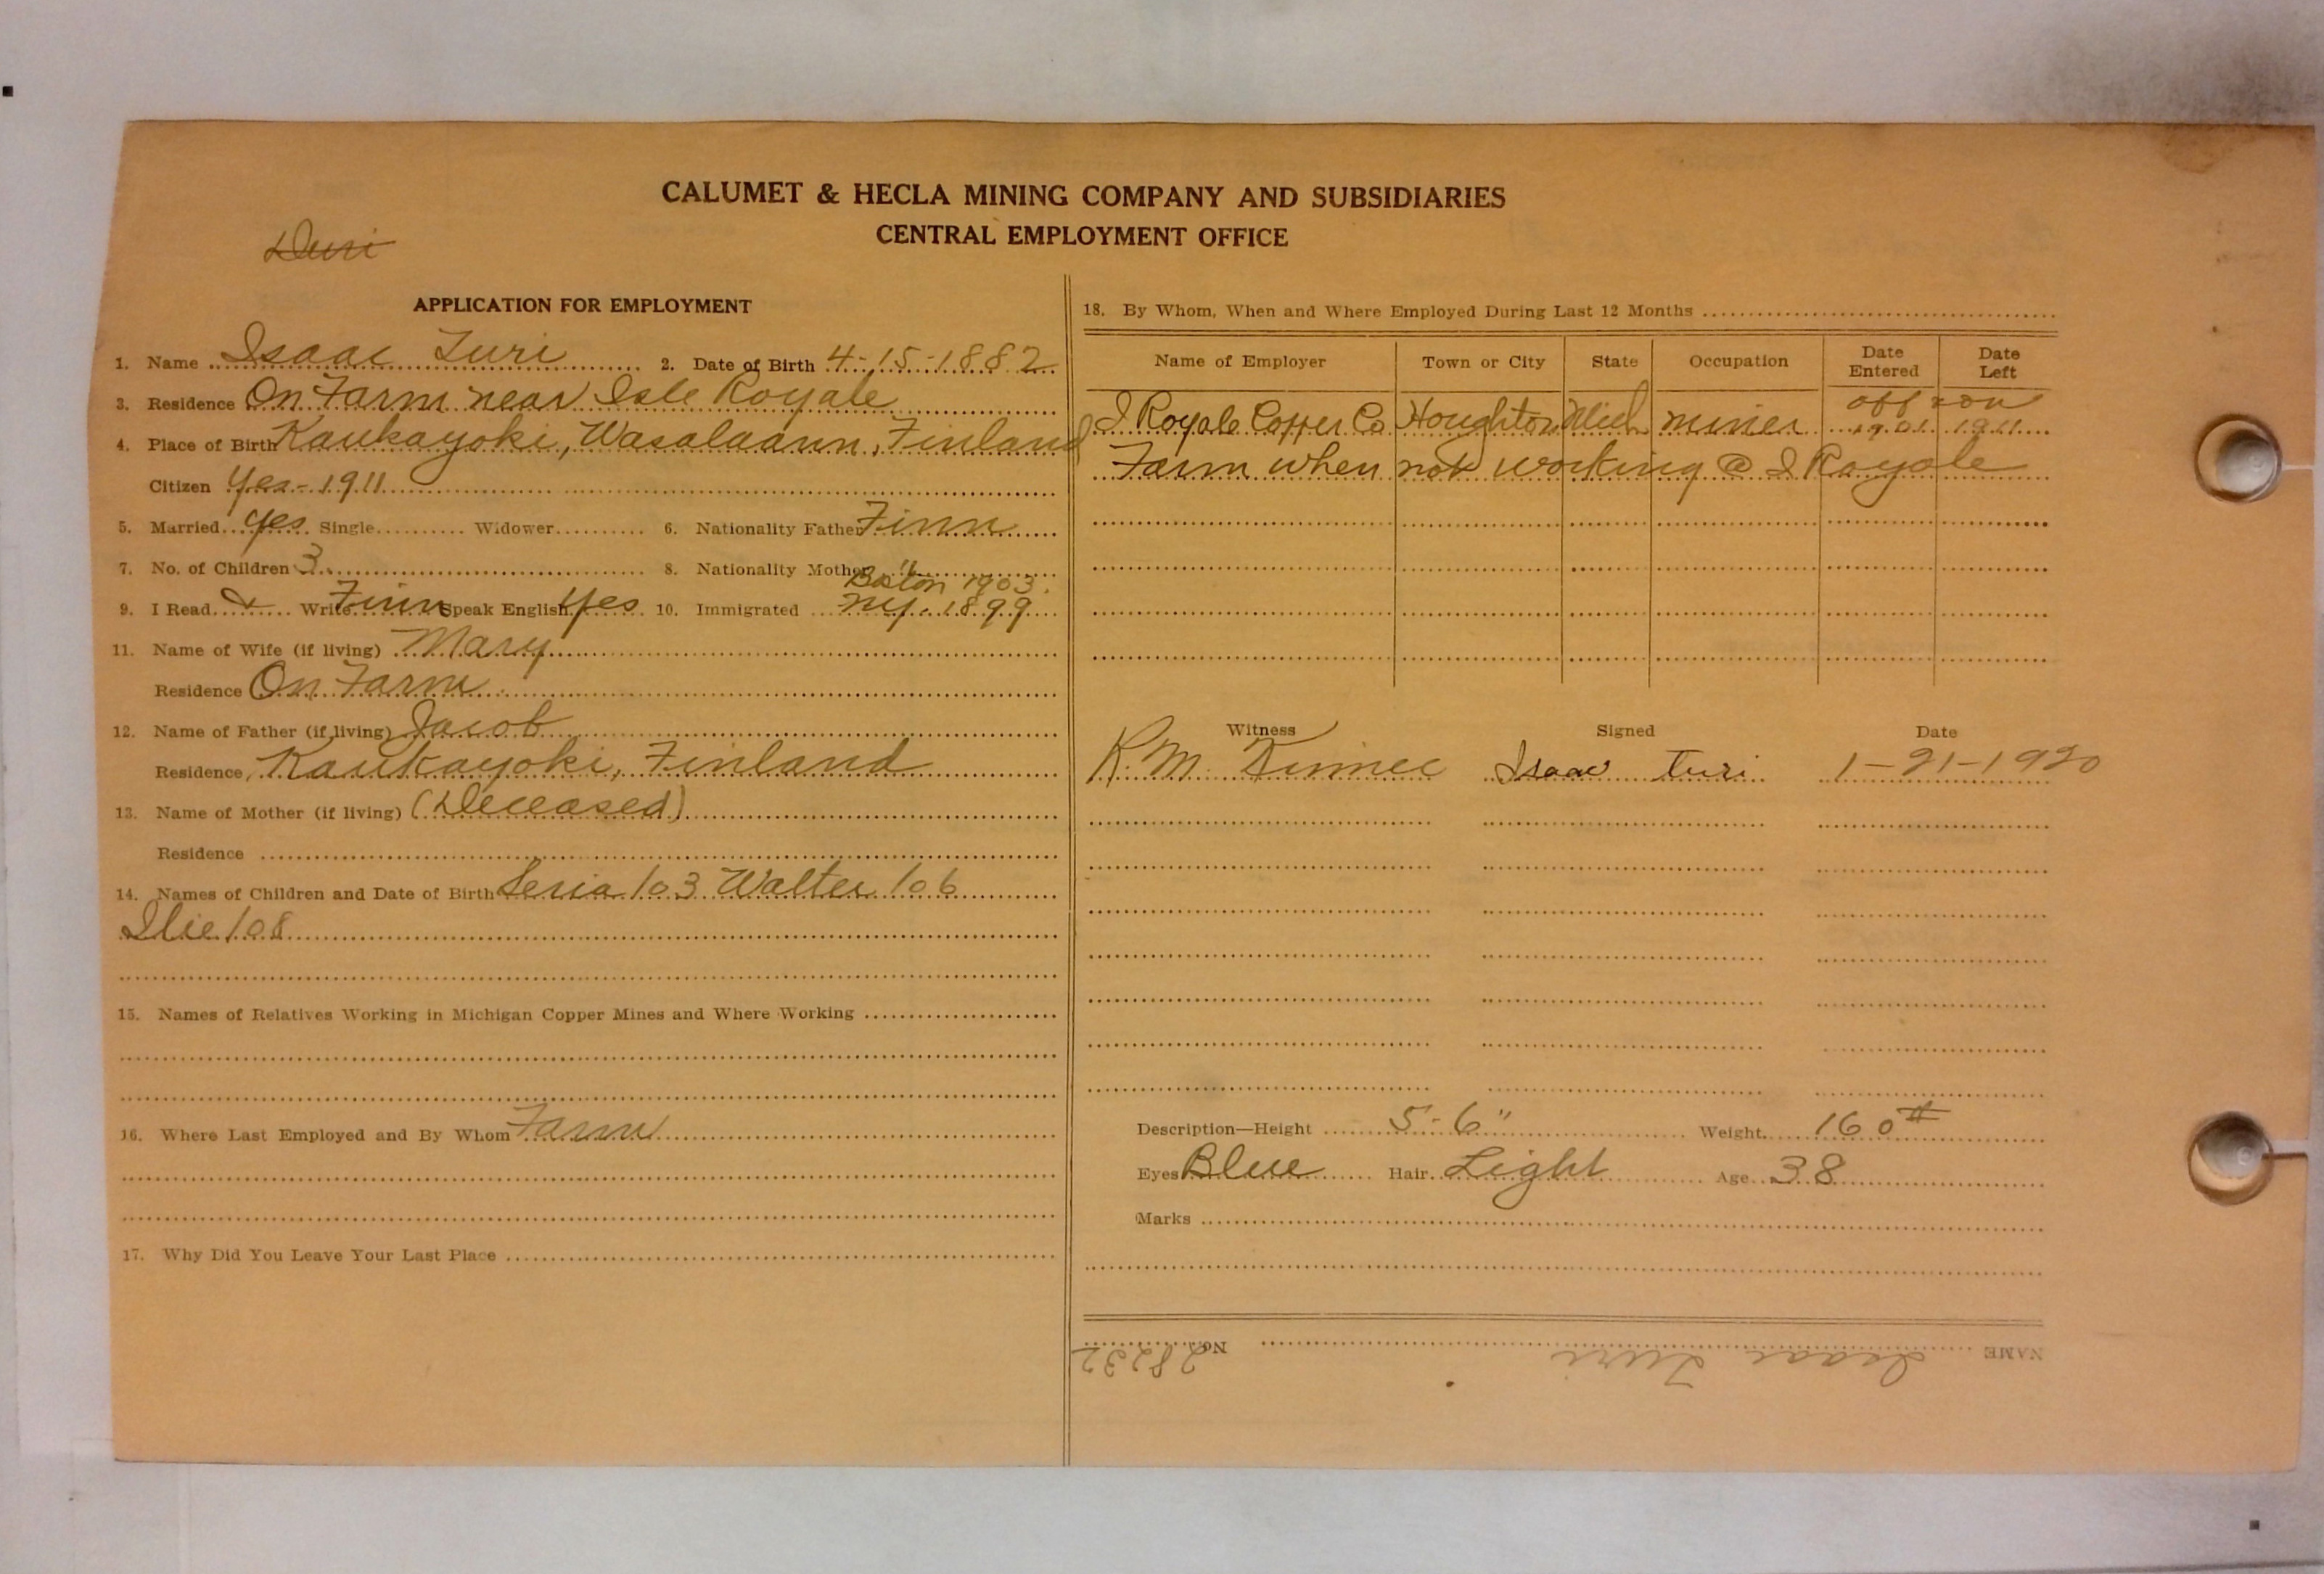 CALUMET & HECLA MINING COMPANY AND SUBSIDIARIES
CENTRAL EMPLOYMENT OFFICE
Duri
APPLICATION FOR EMPLOYMENT
1. Name Isaac Turi 2. Date of Birth 4-15-1882
3. Residence On Farm near Isle Royale
4. Place of Birth Kaukayoki, Wasalaann, Finland
Citizen Yes-1911
5. Married yes Single Widower 6. Nationality Father Finn
7. No. of Children 3 8. Nationality Mother "
Boston 1903.
9. I Read & Write Finn Speak English Yes 10. Immigrated NY. 1899
11. Name of Wife (if living) Mary
Residence On Farm
12. Name of Father (if living) Jacob
Residence Kaukayoki, Finland
13. Name of Mother (if living) (Deceased)
Residence
14. Names of Children and Date of Birth /03 Walter /06
/08
15. Names of Relatives Working in Michigan Copper Mines and Where Working
16. Where Last Employed and By Whom Farm
17. Why Did You Leave Your Last Place
18. By Whom, When and Where Employed During Last 12 Months
Name of Employer Town or City State Occupation Date Entered Date Left
off & on
I Royale Copper Co Houghton Mich miner 1901 1911
Farm when not working @ I Royale
Witness Signed Date
R. M. Isaac Turi 1-21-1920
Description—Height 5-6" Weight 160#
Eyes Blue Hair Light Age 38
Marks
NAME Isaac Turi No. 28232